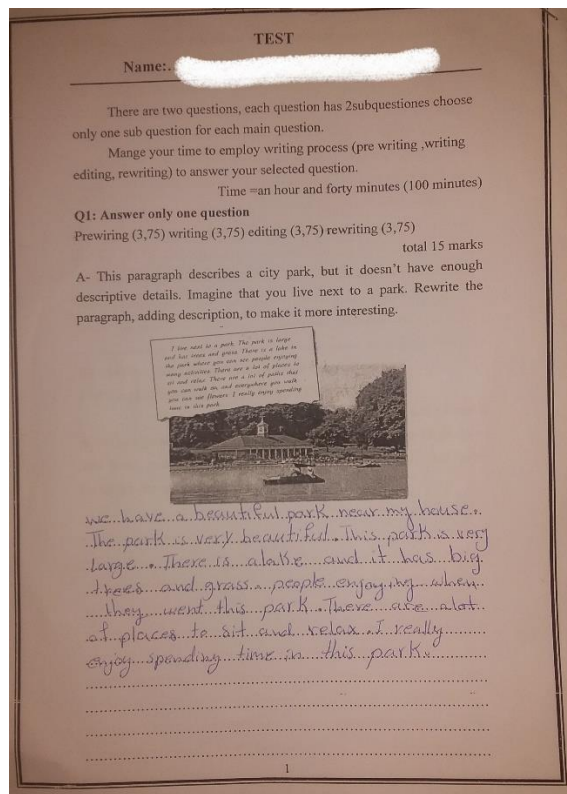 TEST
Name:..
There are two questions, each question has 2subquestiones choose
only one sub question for each main question.
Mange your time to employ writing process (pre writing ,writing
editing, rewriting) to answer your selected question.
Time =an hour and forty minutes (100 minutes)
Q1: Answer only one question
Prewiring (3,75) writing (3,75) editing (3,75) rewriting (3,75)
total 15 marks
A- This paragraph describes a city park, but it doesn't have enough
descriptive details. Imagine that you live next to a park. Rewrite the
paragraph, adding description, to make it more interesting.
I live next to a park. The park is large
and has trees and grass. There is a lake in
the park where you can see people enjoying
many activities. There are a lot of places to
sit and relax. There are a lot of paths that
you can walk on, and everywhere you walk
you can see flowers. I really enjoy spending
time in this park.
we have a beautiful park near my house.
The park is very beautiful. This park is very
Large. There is alake and it has big
trees and grass. people enjoying when
they went this park. There are alot
of places to sit and relax. I really
enjoy spending time in this park.
1